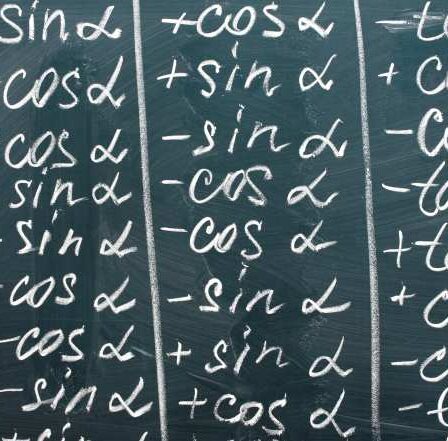 sin α +cos α -t
cos α +sin α + c
cos α -sin α - c
sin α -cos α - t
sin α -cos α + t
cos α -sin α + c
-cos α + sin α - c
-sin α +cos α - t